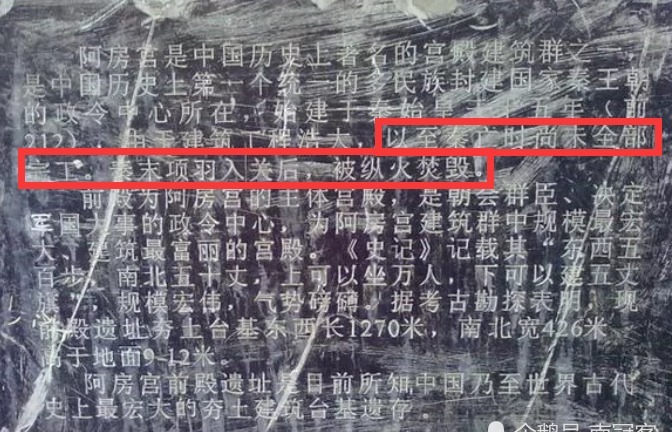 阿房宫是中国历史上著名的宫殿建筑群之一,
是中国历史上第一个统一的多民族封建国家秦王朝
的政令中心所在,始建于秦始皇三十五年(前
212),由于建筑工程浩大,以至秦亡时尚未全部
完工。秦末项羽入关后,被纵火焚毁。
前殿为阿房宫的主体宫殿,是朝会群臣、决定
军国大事的政令中心,为阿房宫建筑群中规模最宏
大、建筑最富丽的宫殿。《史记》记载其“东西五
百步,南北五十丈,上可以坐万人,下可以建五丈
旗”,规模宏伟,气势磅礴。据考古勘探表明,现
前殿遗址夯土台基东西长1270米,南北宽426米
高于地面9-12米。
阿房宫前殿遗址是目前所知中国乃至世界古代
史上最宏大的夯土建筑台基遗存。
企鹅号 南冠客